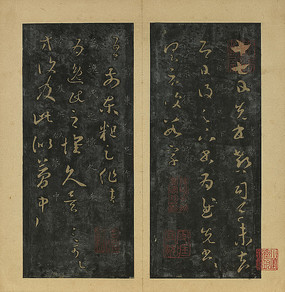 十七日先書郗司馬未去
即日得足下書為慰先書
以具示復數字
吾前東粗足作佳觀
吾為逸民之懷久矣足下何以
方復及此似夢中